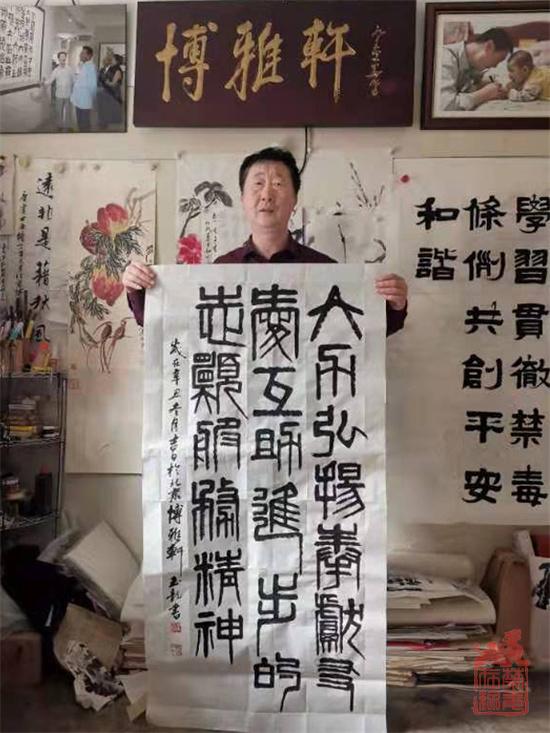 博雅軒
學習貫徹禁毒
條例共創平安
和諧
大力弘揚奉獻友
愛互助進步的
志願服務精神
歲在辛丑月書於北京博雅軒
非是藉秋風